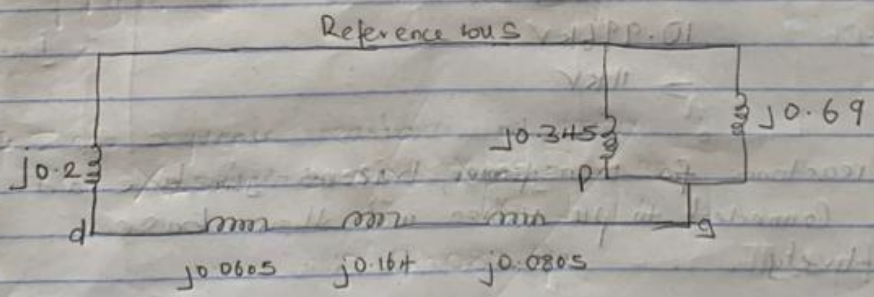 Reference bus
j0.345
j0.69
j0.2
p
d
g
j0.0605 j0.164 j0.0805